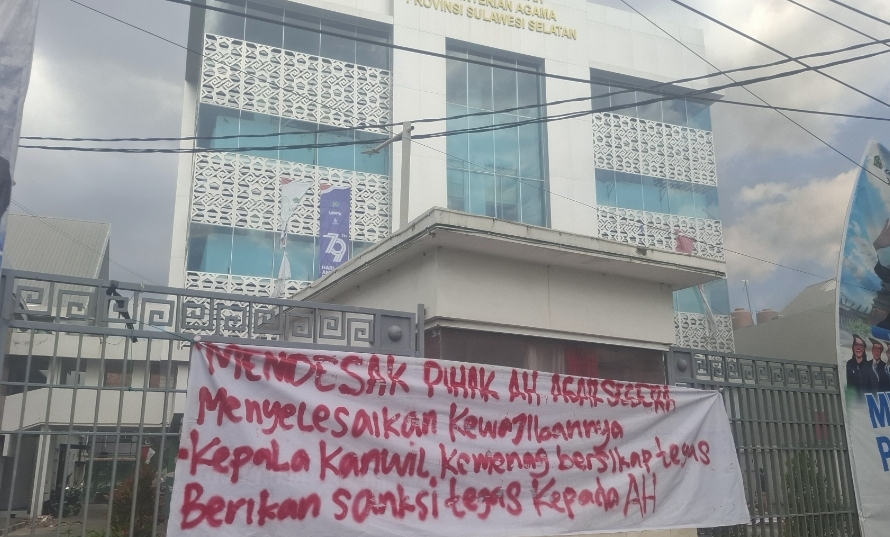 KEMENTERIAN AGAMA
PROVINSI SULAWESI SELATAN
79
HARI
MENDESAK PIHAK AH AGAR SEGERA
Menyelesaikan Kewajibannya
-Kepala Kanwil Kemenag bersikap tegas
Berikan sanksi tegas Kepada AH